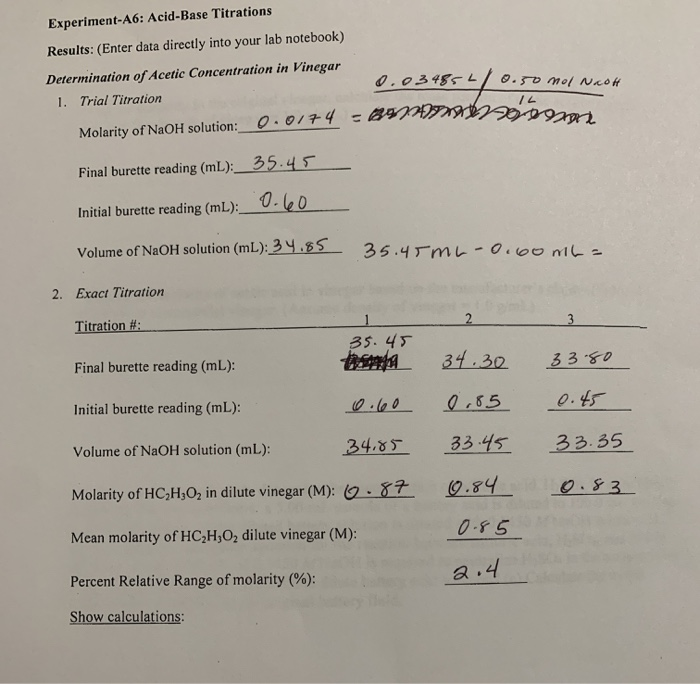 Experiment-A6: Acid-Base Titrations
Results: (Enter data directly into your lab notebook)
Determination of Acetic Concentration in Vinegar
0.03485 L / 0.50 mol NaOH
1. Trial Titration
1L
Molarity of NaOH solution: 0.0174 =
Final burette reading (mL): 35.45
Initial burette reading (mL): 0.60
Volume of NaOH solution (mL): 34.85 35.45 mL - 0.60 mL =
2. Exact Titration
Titration #: 1 2 3
Final burette reading (mL): 35.45 34.30 33.80
Initial burette reading (mL): 0.60 0.85 0.45
Volume of NaOH solution (mL): 34.85 33.45 33.35
Molarity of HC₂H₃O₂ in dilute vinegar (M): 0.87 0.84 0.83
Mean molarity of HC₂H₃O₂ dilute vinegar (M): 0.85
Percent Relative Range of molarity (%): 2.4
Show calculations: